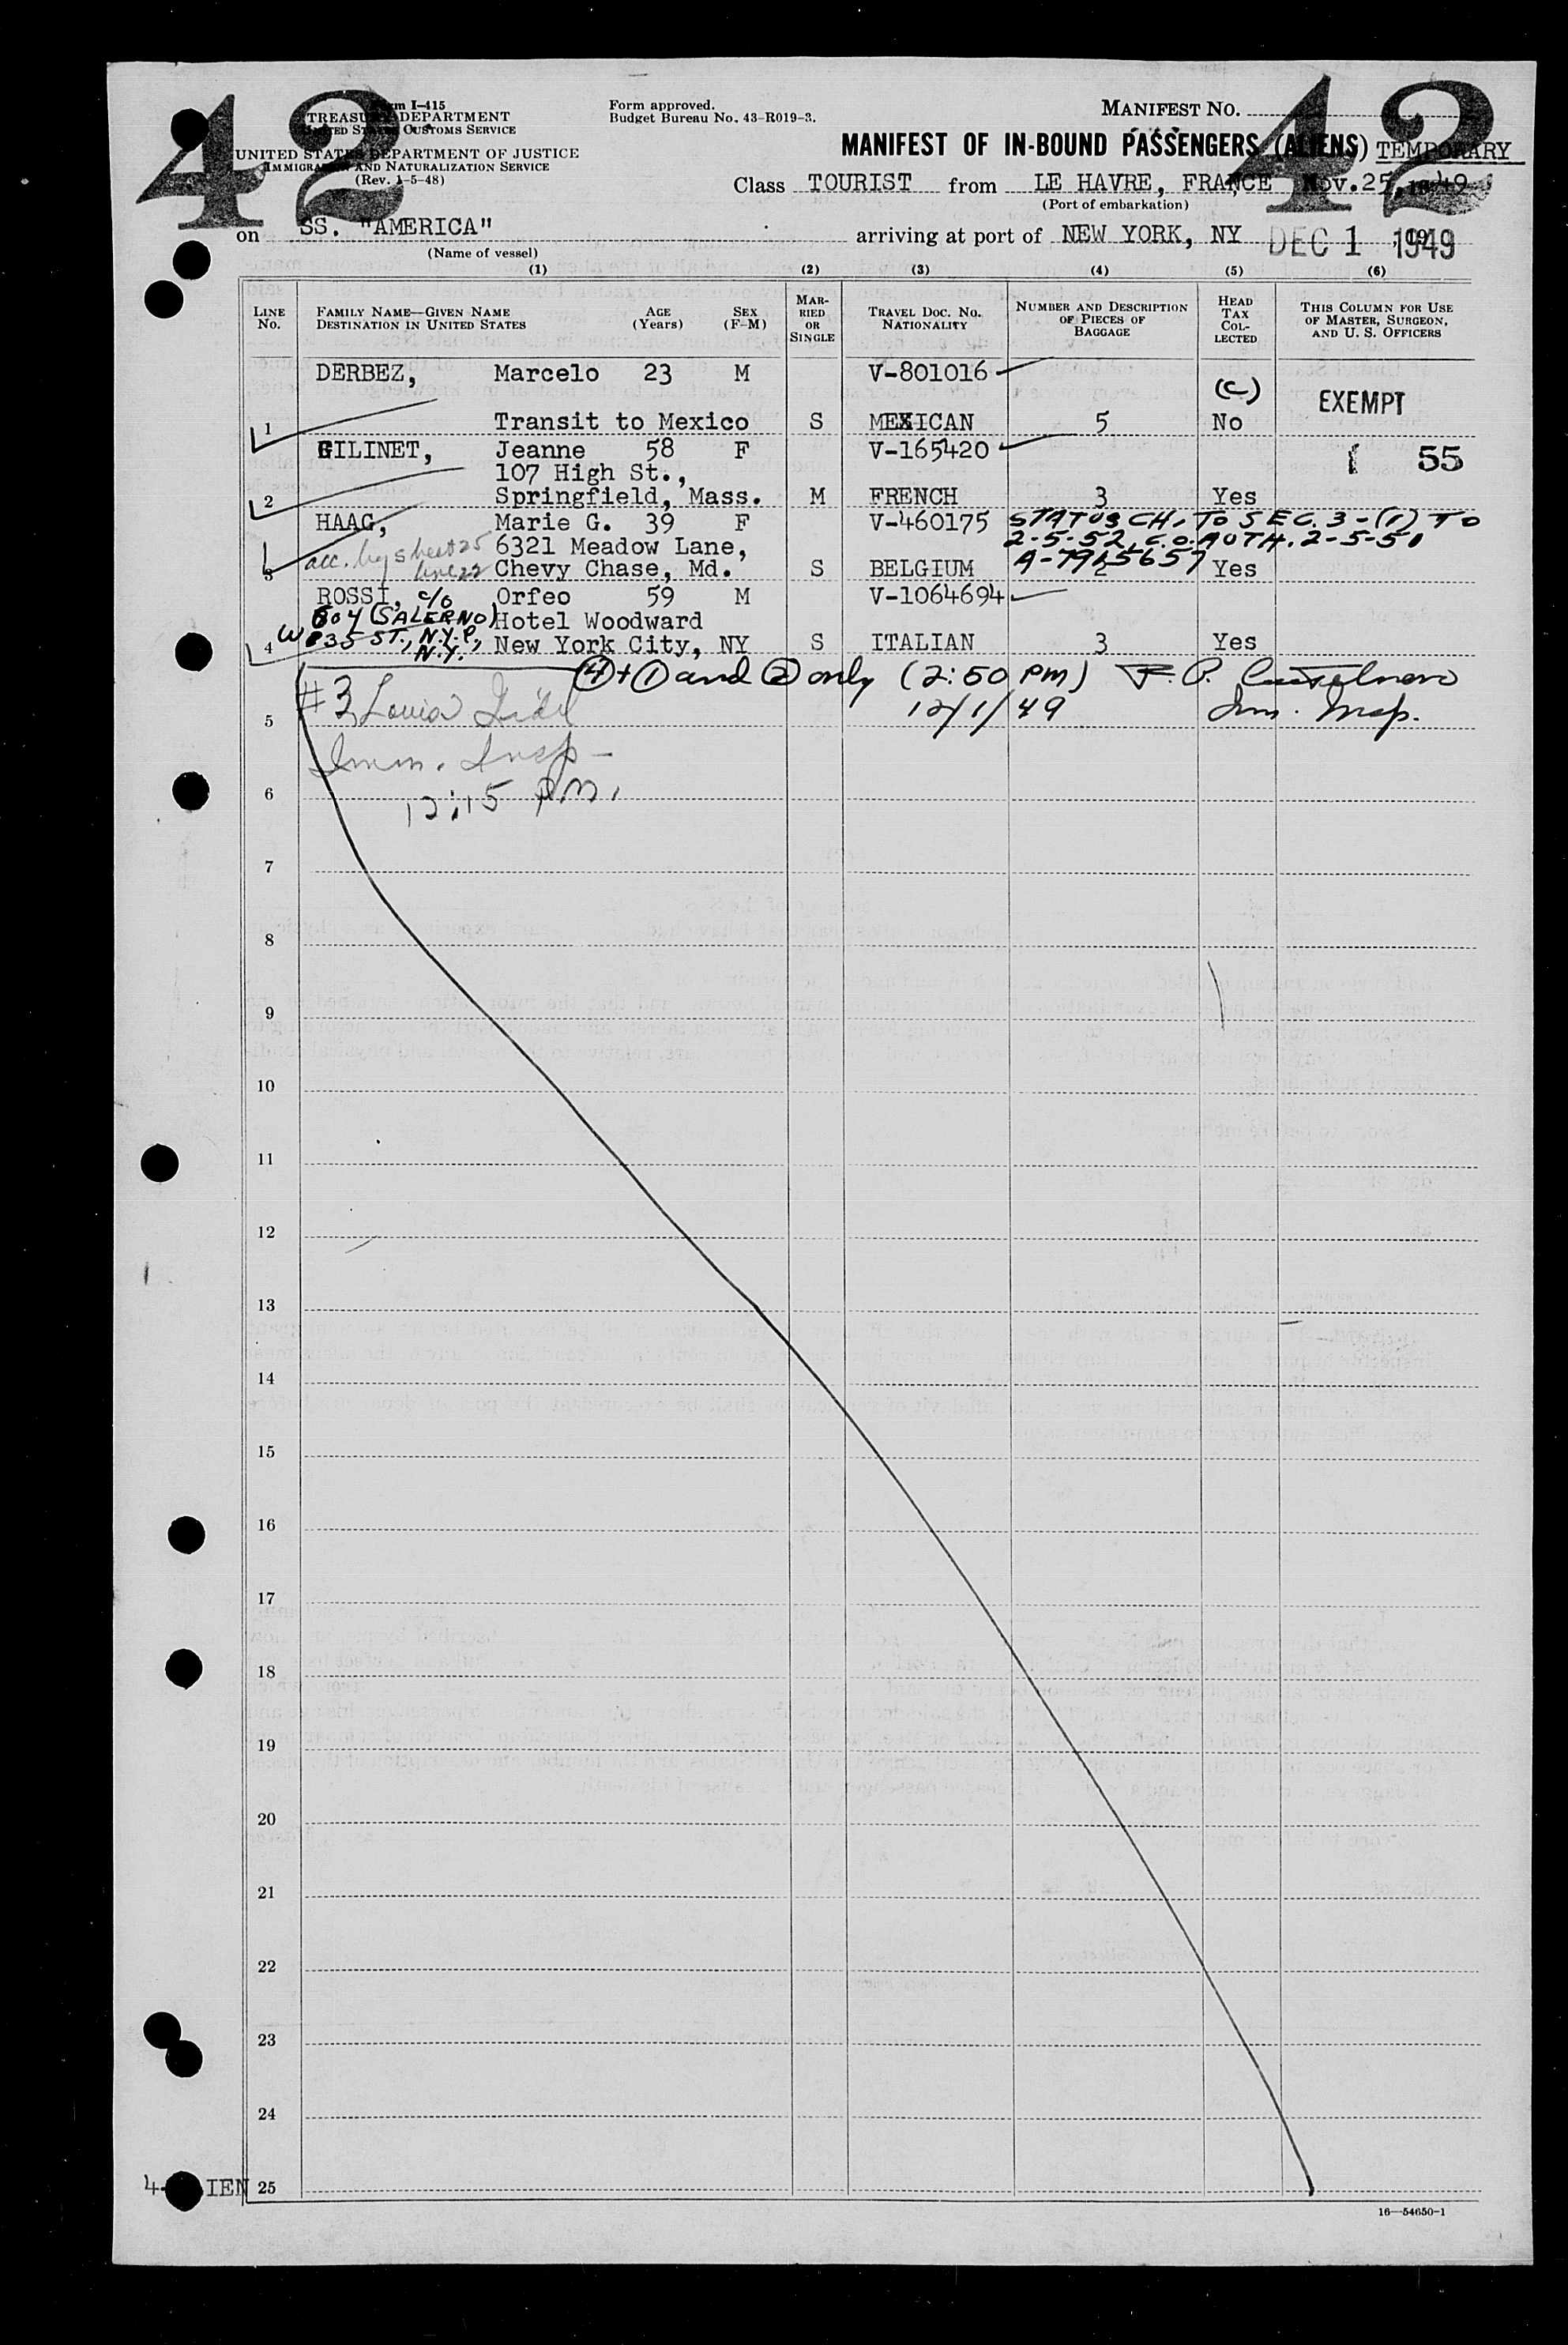 42
42
Form I-415
TREASURY DEPARTMENT
UNITED STATES CUSTOMS SERVICE
UNITED STATES DEPARTMENT OF JUSTICE
IMMIGRATION AND NATURALIZATION SERVICE
(Rev. 1-5-48)
Form approved.
Budget Bureau No. 43-R019-3.
MANIFEST NO.
MANIFEST OF IN-BOUND PASSENGERS (ALIENS) TEMPORARY
Class TOURIST from LE HAVRE, FRANCE Nov. 25, 1949
(Port of embarkation)
on SS. "AMERICA" arriving at port of NEW YORK, NY DEC 1 1949
(Name of vessel)
(1) (2) (3) (4) (5) (6)
LINE No. FAMILY NAME—GIVEN NAME DESTINATION IN UNITED STATES AGE (Years) SEX (F-M) MARRIED OR SINGLE TRAVEL DOC. NO. NATIONALITY NUMBER AND DESCRIPTION OF PIECES OF BAGGAGE HEAD TAX COLLECTED THIS COLUMN FOR USE OF MASTER, SURGEON, AND U. S. OFFICERS
DERBEZ, Marcelo 23 M V-801016
(C) EXEMPT
1 Transit to Mexico S MEXICAN 5 No
GILINET, Jeanne 58 F V-165420
107 High St., 55
2 Springfield, Mass. M FRENCH 3 Yes
HAAG, Marie G. 39 F V-460175 STATUS CH. TO SEC. 3-(1) TO
acc. by sheet 25 6321 Meadow Lane, 2-5-52, C.O. AUTH. 2-5-51
line 22 A-7915657
3 Chevy Chase, Md. S BELGIUM 2 Yes
ROSSI, c/o Orfeo 59 M V-1064694
(SALERNO) Hotel Woodward
4 W 35 ST., N.Y.P., N.Y. New York City, NY S ITALIAN 3 Yes
④+① and ② only (2:50 PM)
#3 Louis
5 12/1/49 Imm. Insp.
Imm. Insp-
6 12:15 P.M.
7
8
9
10
11
12
13
14
15
16
17
18
19
20
21
22
23
24
25
16—54650-1